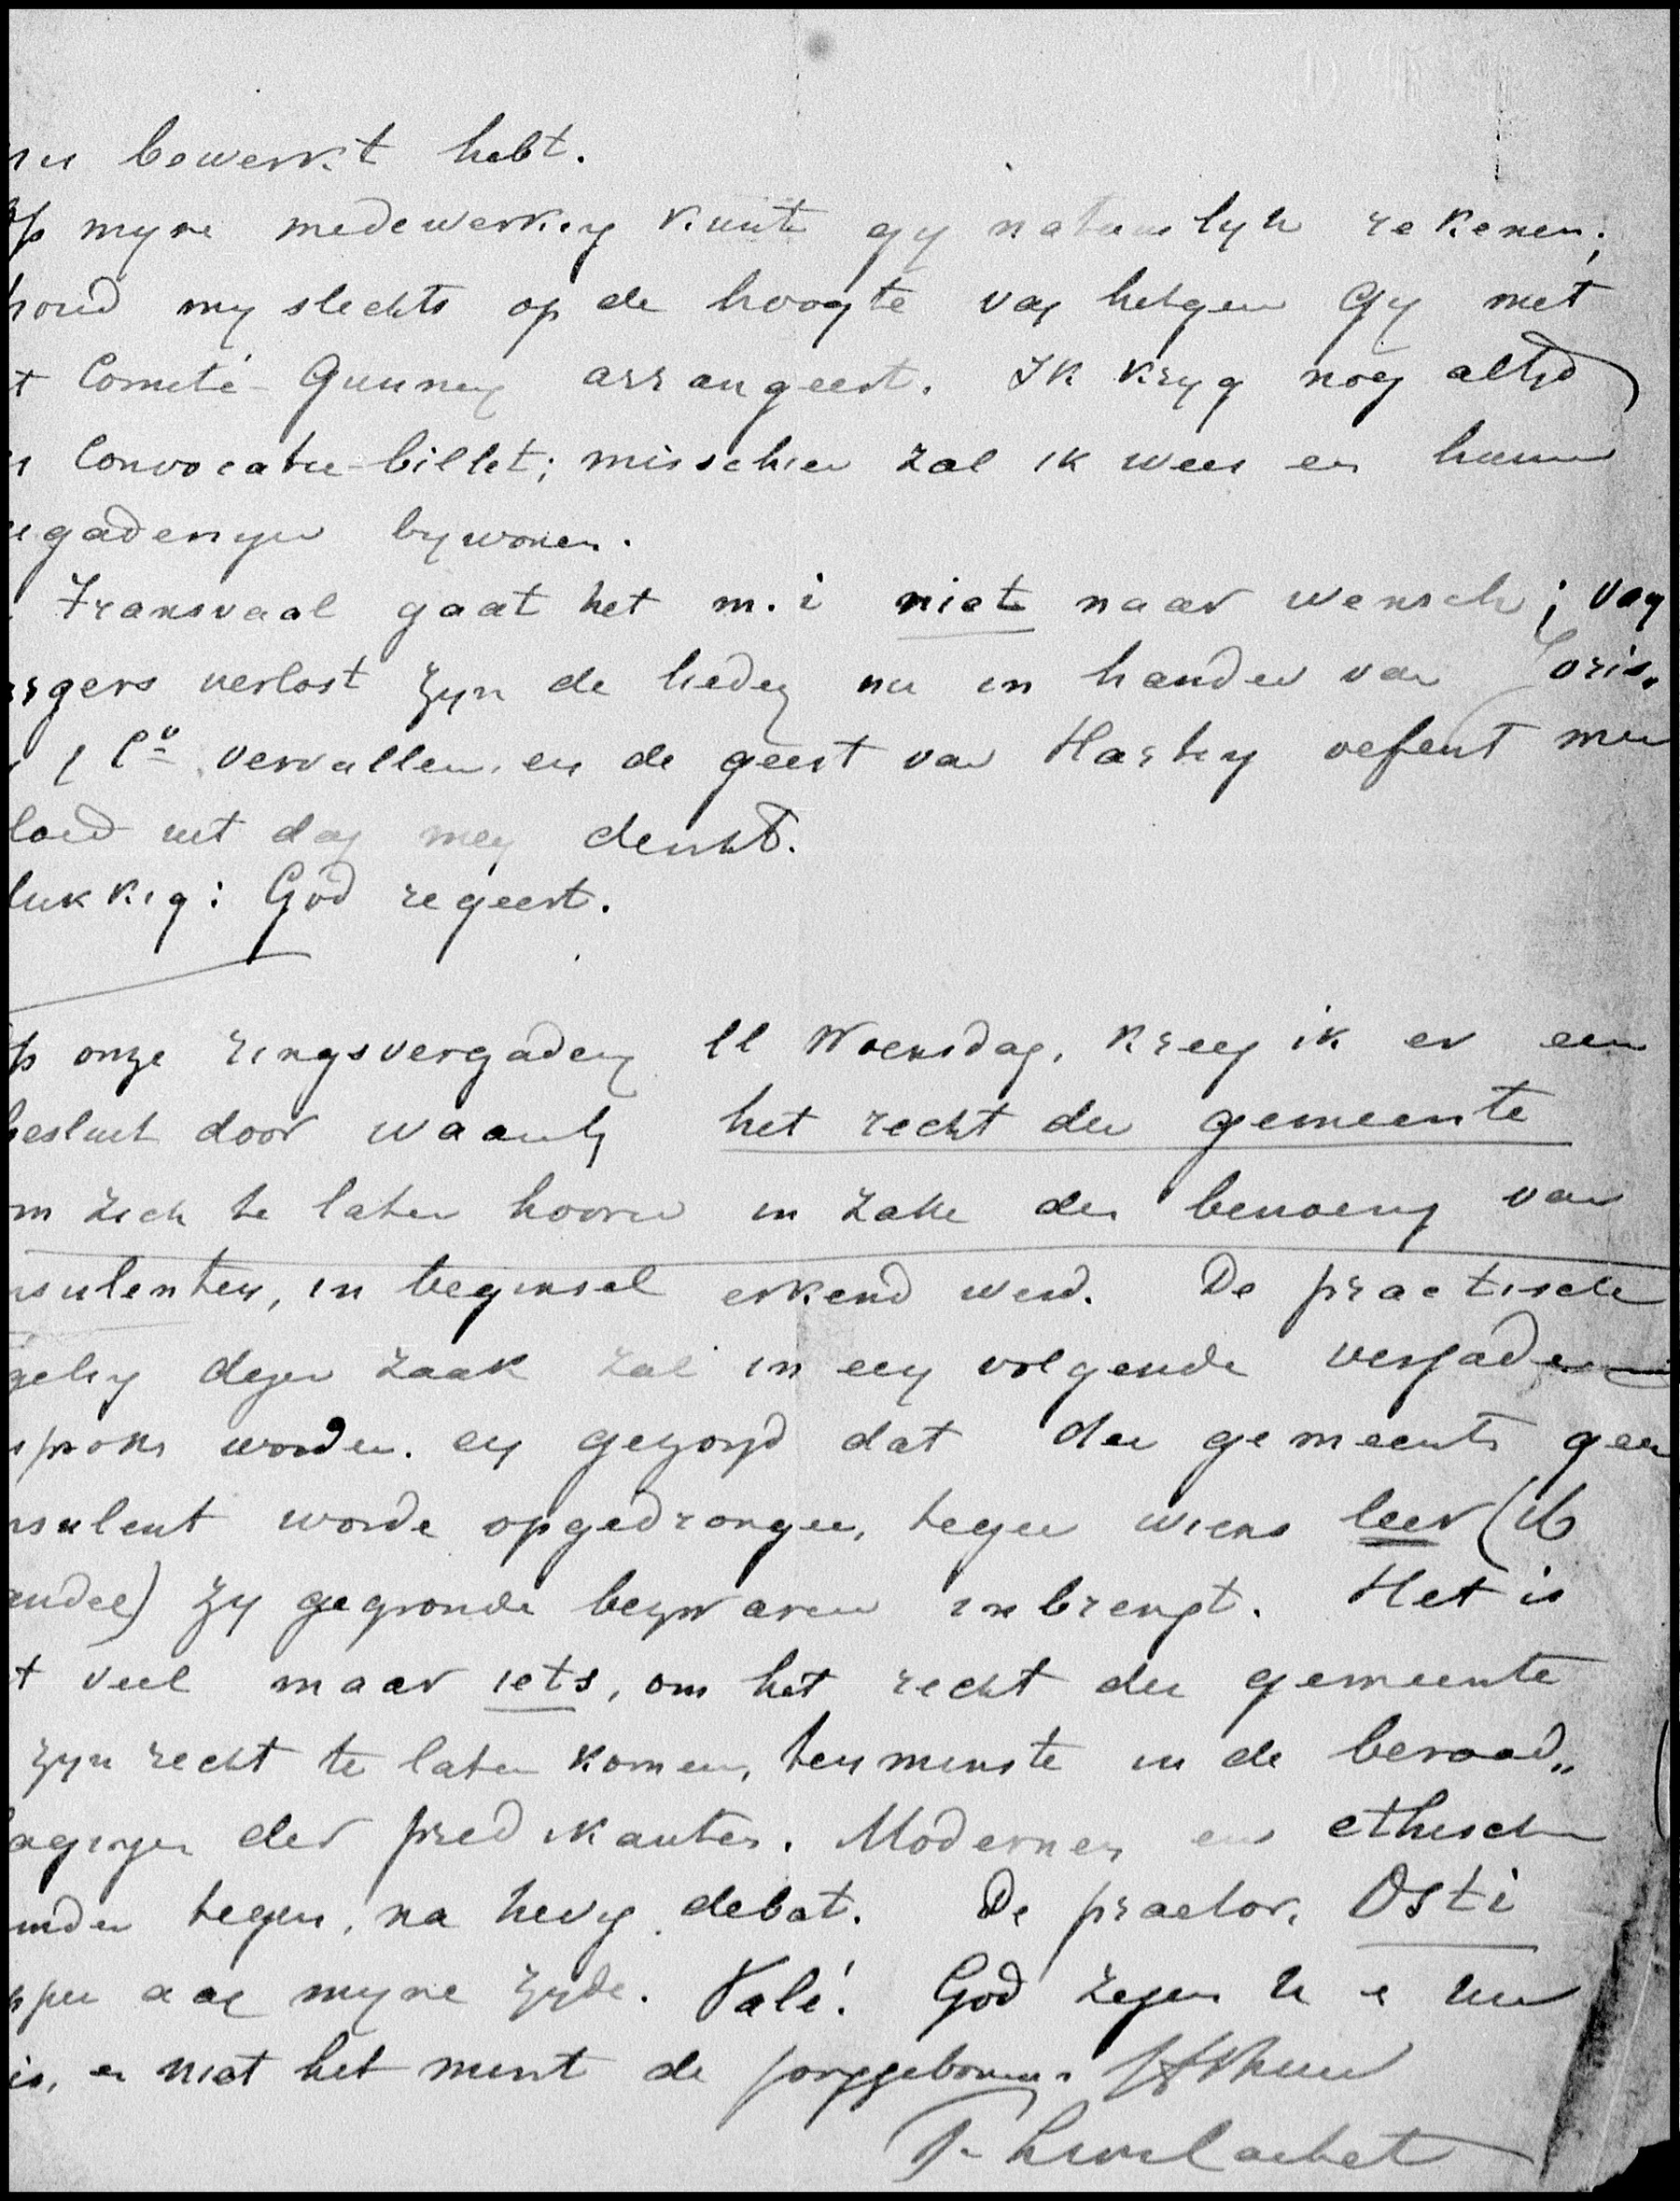 nu bewerkt hebt.
Op myne medewerking kunt gy natuurlyk rekenen;
houd my slechts op de hoogte van hetgeen Gy met
t Comité Gunning arrangeert. Ik kryg nog altyd
n Convocatie-billet; misschien zal ik weer en hunne
gaderingen bywonen.
Transvaal gaat het m.i niet naar wensch; van
rgers verlost zyn de lieden nu in handen van Joris„
n / C° vervallen, en de geest van oefent meer
loed uit dan men denkt.
lukkig: God regeert.
Op onze ringsvergadering ll Woensdag, kreeg ik er een
besluit door waarby het recht der gemeente
om zich te laten hooren in zake der benoeming van
nsulenten, in beginsel erkend werd. De practische
geling dezer zaak zal in een volgende vergadering
sproken worden. en gezorgd dat der gemeente geen
nsulent worde opgedrongen, tegen wiens leer (
andel) zy gegronde bezwaren inbrengt. Het is
t veel maar iets, om het recht der gemeente
zyn recht te laten komen, tenminste in de beraad„
agingen der predikanten. Modernen en ethischen
nden tegen, na hevig debat. De praetor,
aan myne zyde. Vale! God zegen U en uw
is, en niet het minst de jonggeborene.